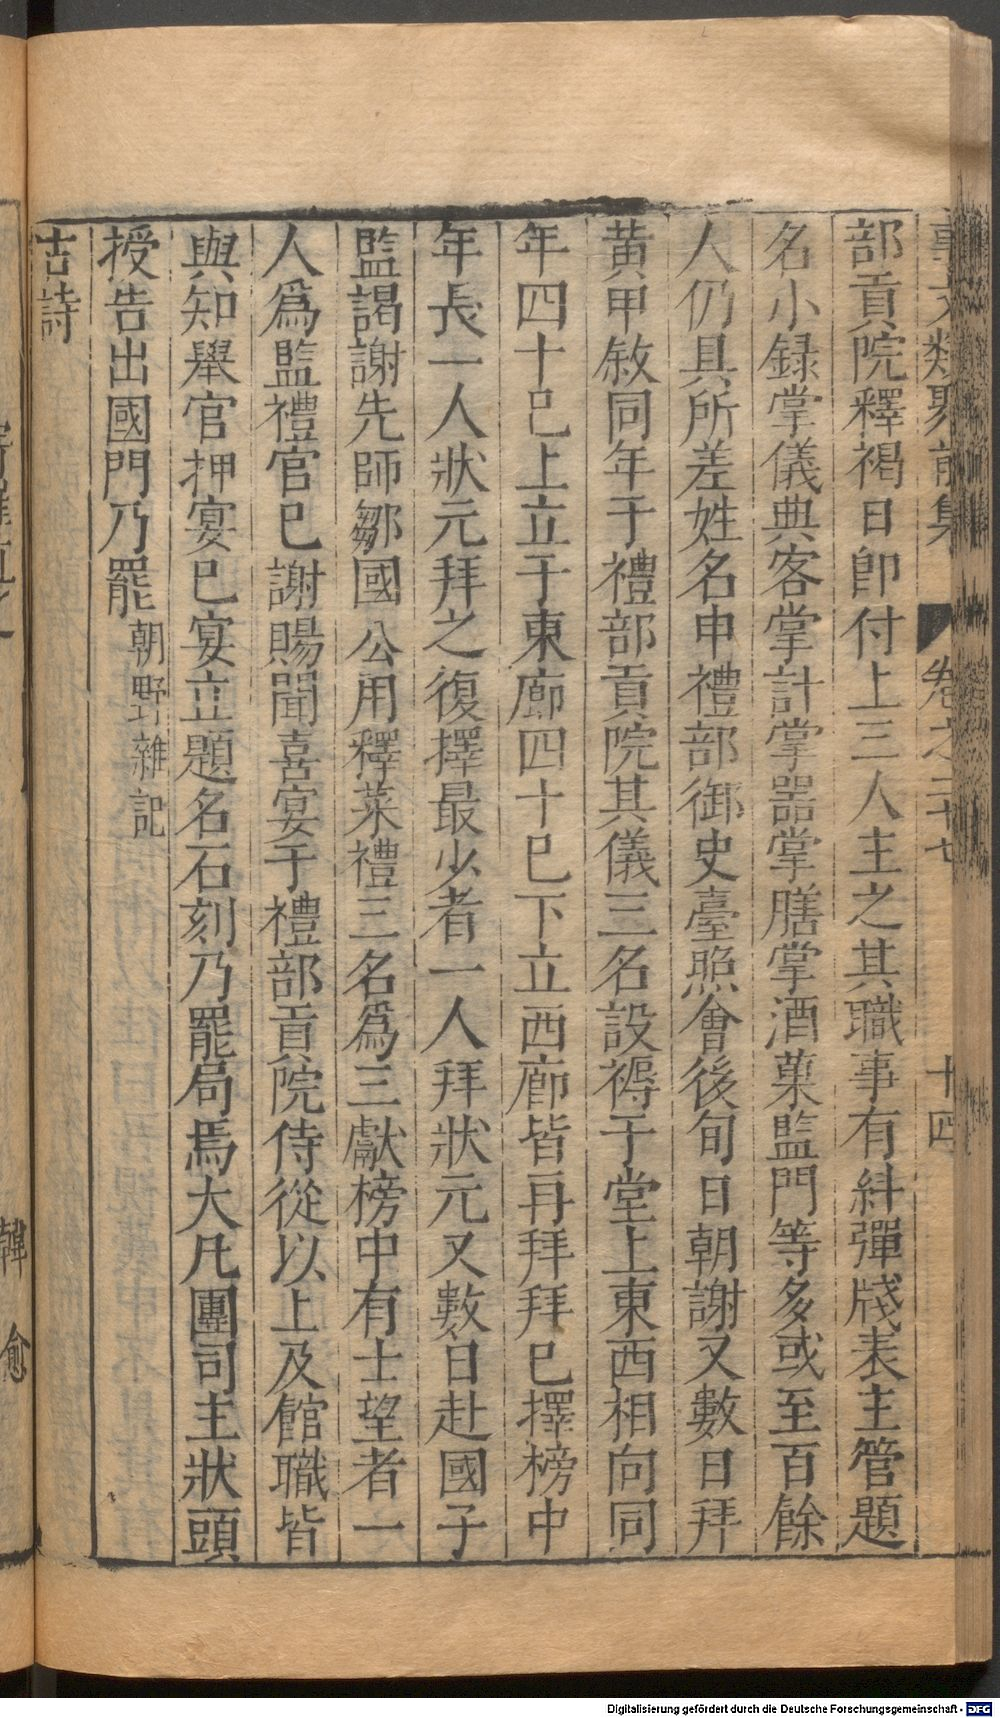 事文類聚前集 卷之二十七 十四
部貢院釋褐日卽付上三人主之其職事有糾彈牋表主管題
名小録掌儀典客掌計掌器掌膳掌酒菓監門等多或至百餘
人仍具所差姓名申禮部御史臺照會後旬日朝謝又數日拜
黄甲敘同年于禮部貢院其儀三名設褥于堂上東西相向同
年四十已上立于東廊四十已下立西廊皆再拜拜已擇榜中
年長一人狀元拜之復擇最少者一人拜狀元又數日赴國子
監謁謝先師鄒國公用釋菜禮三名爲三獻榜中有士望者一
人爲監禮官已謝賜聞喜宴于禮部貢院侍從以上及館職皆
與知舉官押宴已宴立題名石刻乃罷局焉大凡團司主狀頭
授告出國門乃罷朝野雜記
古詩
韓愈
Digitalisierung gefördert durch die Deutsche Forschungsgemeinschaft - DFG